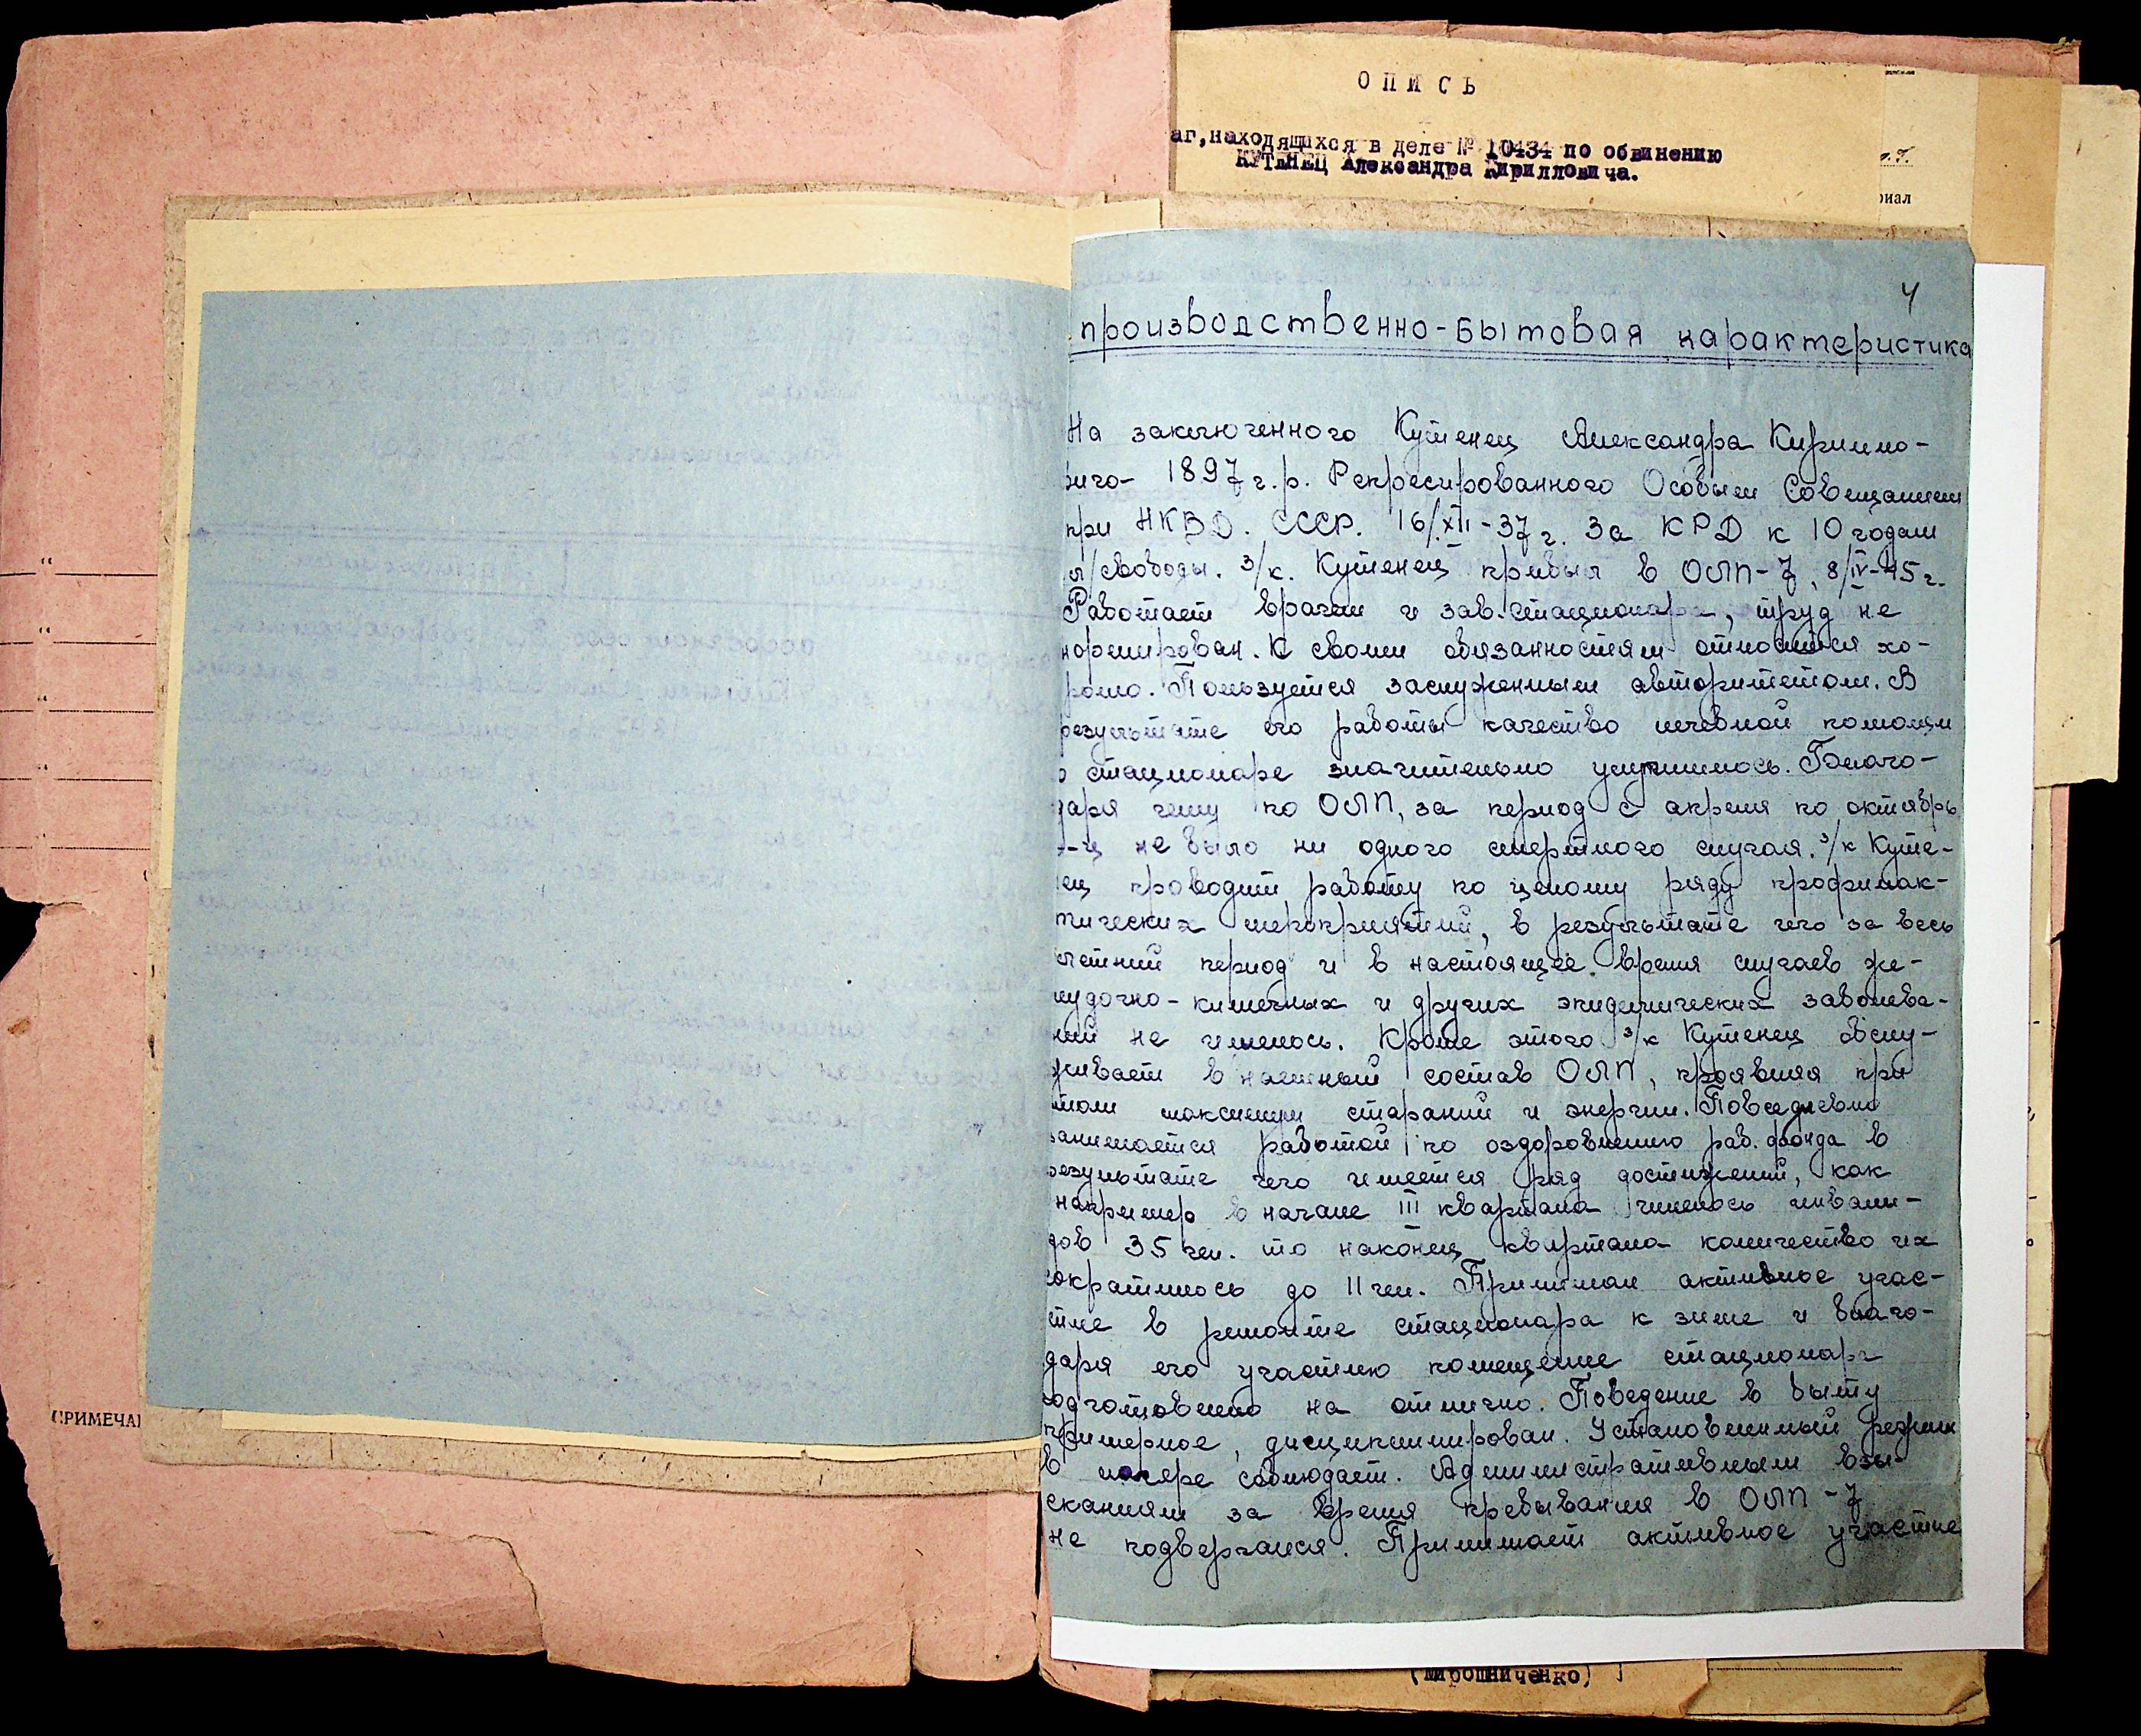 О П И С Ь
аг, находящихся в деле № 10434 по обвинению
КУТЕНЕЦ Александра Кирилловича.
о.г.
риал
4
производственно-бытовая характеристика
На заключенного Кутенец Александра Кирилло-
вича 1897 г.р. Репресированного Особым Совещанием
при НКВД. СССР. 16/XII-37 г. За КРД к 10 годам
л/свободы. з/к. Кутенец прибыл в ОЛП-7, 8/IV-45 г.
Работает врачом и зав. стационара, труд не
нормирован. К своим обязанностям относится хо-
рошо. Пользуется заслуженным авторитетом. В
результате его работы качество лечебной помощи
в стационаре значительно улучшилось. Благо-
даря чему по ОЛП, за период с апреля по октябрь
м-ц не было ни одного смертного случая. з/к Куте-
нец проводит работу по целому ряду профилак-
тических мероприятий, в результате чего за весь
летний период и в настоящее время случаев же-
лудочно-кишечных и других эпидемических заболева-
ний не имелось. Кроме этого з/к Кутенец обслу-
живает в/наемный состав ОЛП, проявляя при
этом максимум стараний и энергии. Повседневно
занимается работой по оздоровлению раб. фонда в
результате чего имеется ряд достижений, как
например в начале III квартала имелось инвали-
дов 35 чел. то наконец квартала количество их
сократилось до 11 чел. Принимал активное учас-
тие в ремонте стационара к зиме и благо-
даря его участию помещение стационара
подготовлено на отлично. Поведение в быту
примерное, дисциплинирован. Установленный режим
в лагере соблюдает. Административным взы-
сканиям за время пребывания в ОЛП-7
не подвергался. Принимает активное участие
ПРИМЕЧАН
(Мирошниченко)